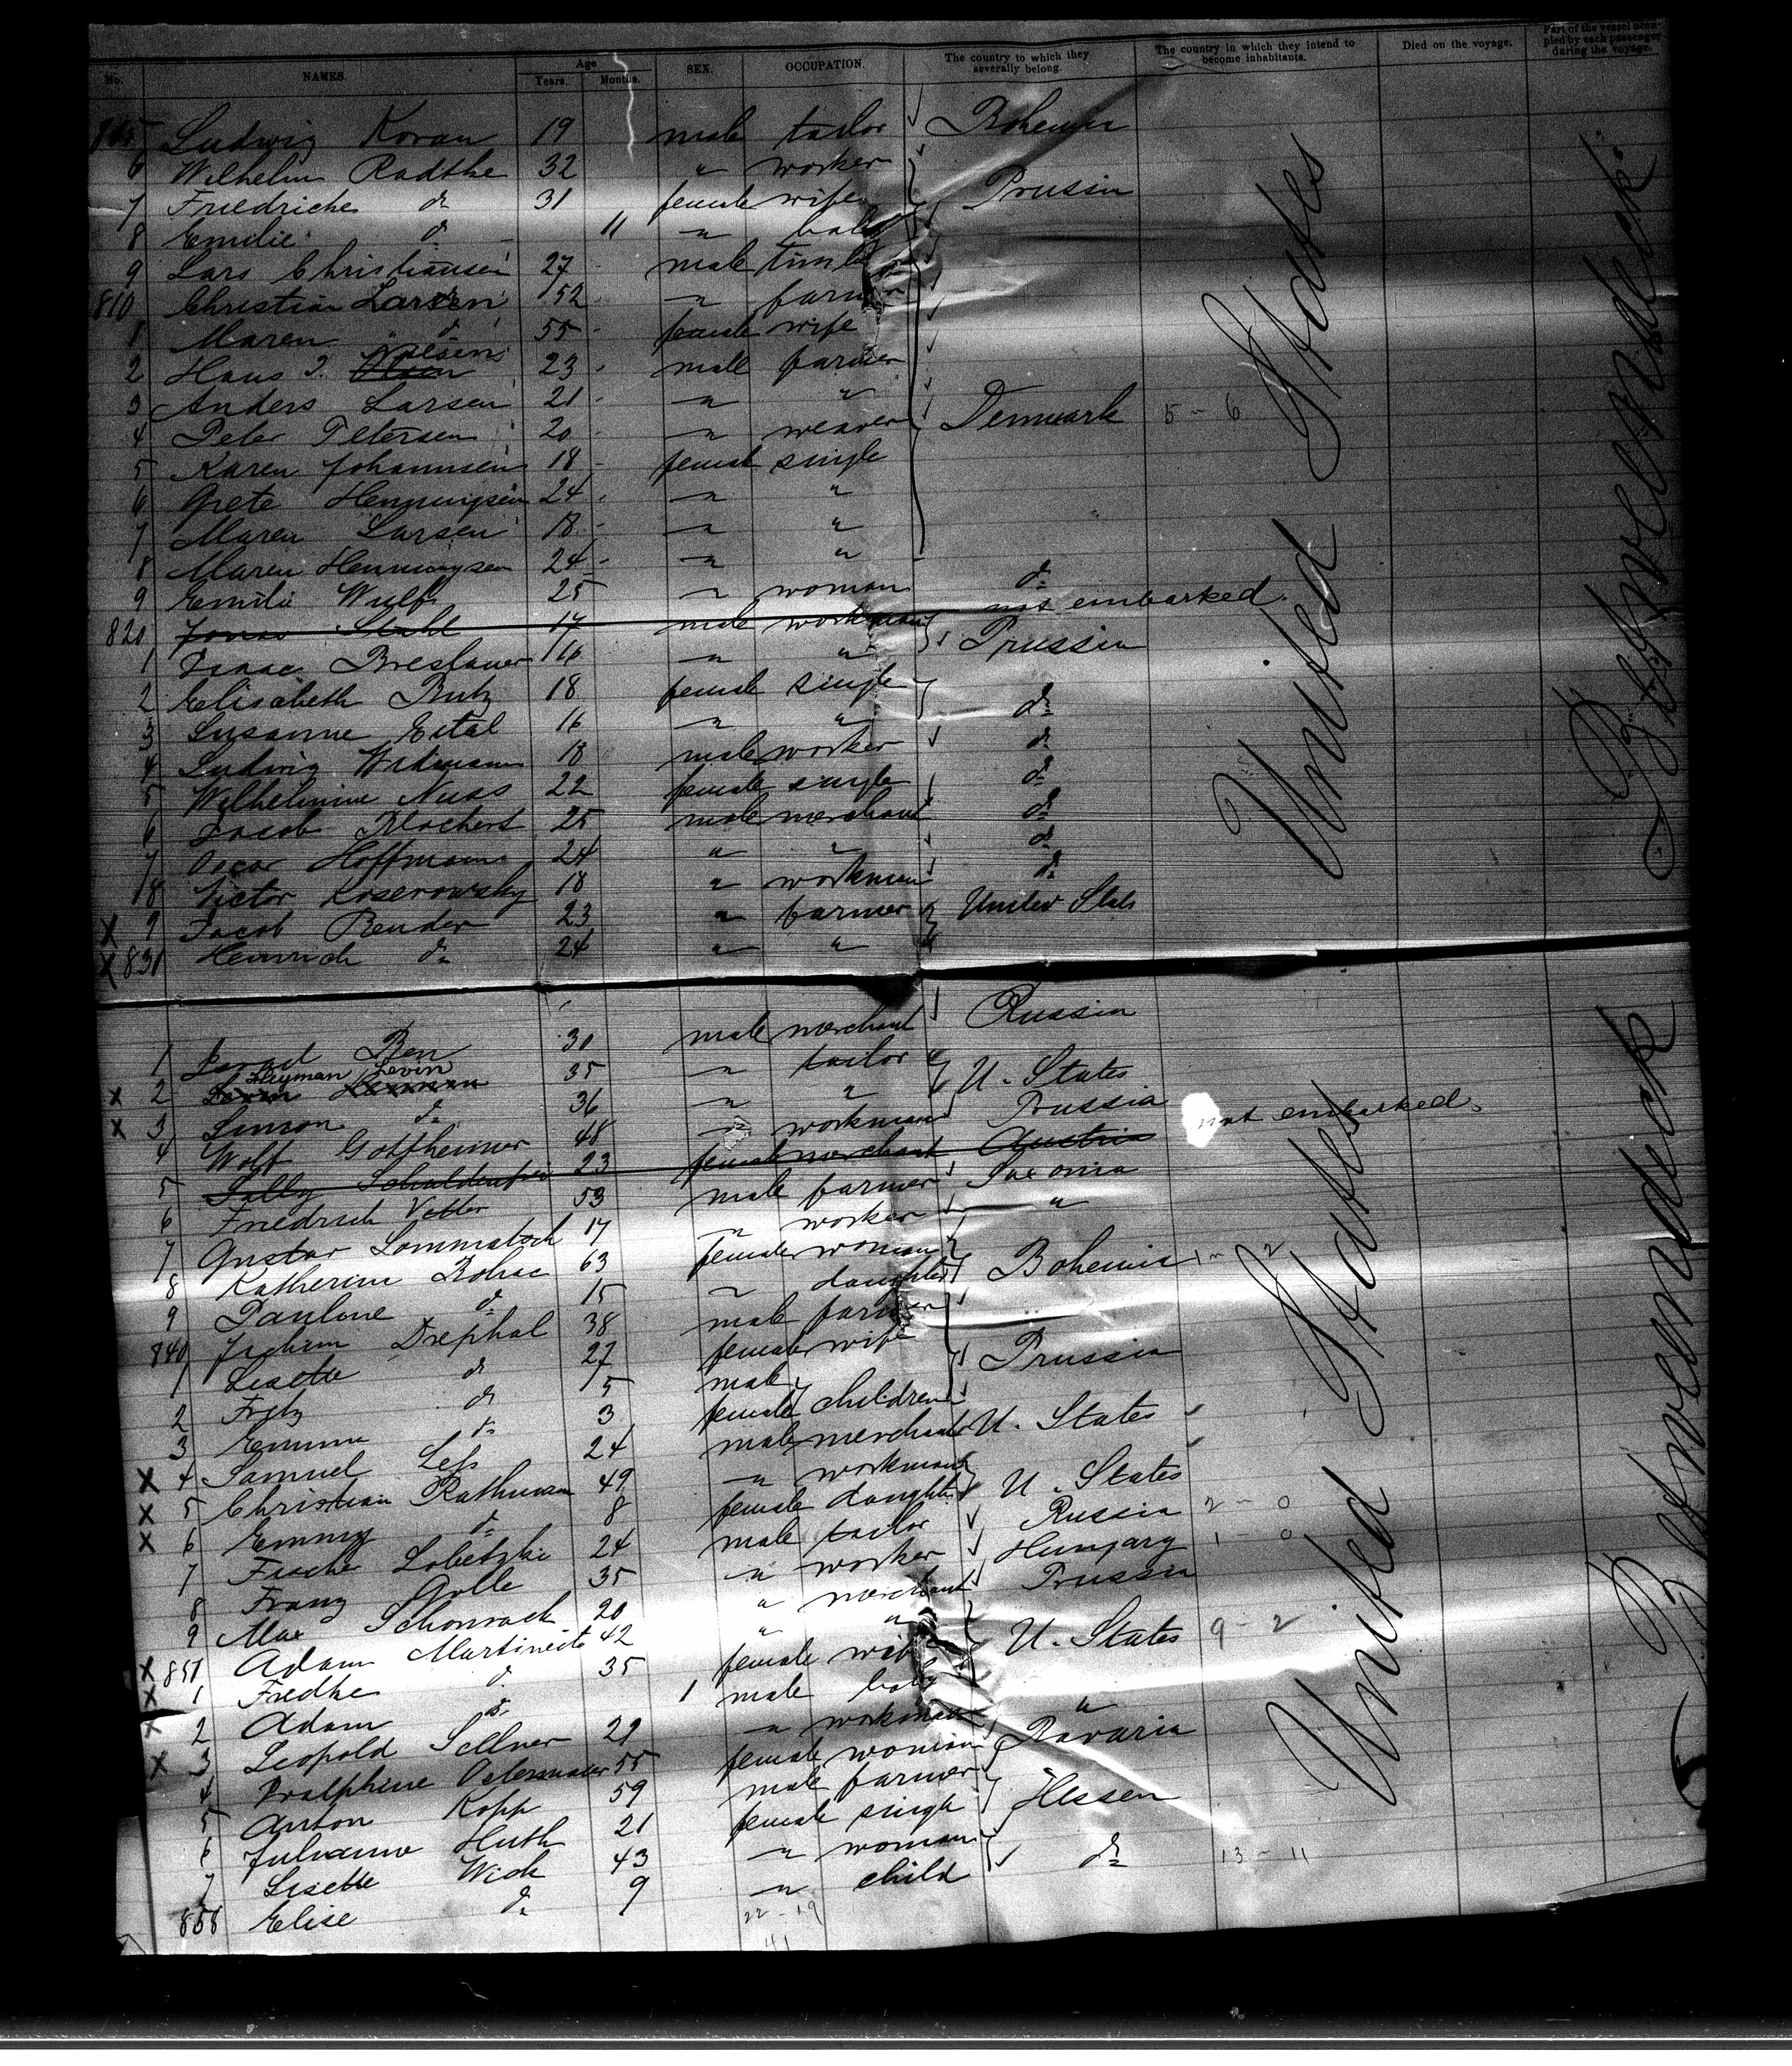 No. NAMES. Age Years. Months. SEX. OCCUPATION. The country to which they severally belong. The country in which they intend to become inhabitants. Died on the voyage. Part of the vessel occupied by each passenger during the voyage.
805 Ludwig Kovan 19 male tailor Bohemia
6 Wilhelm Radthe 32 " worker
7 Friedriche do 31 female wife Prussia
8 Emilie do 11 " baby
9 Lars Christiansen 27 male
810 Christian Larsen 52 " farmer
1 Maren do 55 female wife
2 Hans J. Nielsen 23 male farmer
3 Anders Larsen 21 " "
4 Peter Petersen 20 " weaver Denmark 5 - 6
5 Karen Johannsen 18 female single
6 Grete Henningsen 24 " "
7 Maren Larsen 18 " "
8 Maren Henningsen 24 " "
9 Emilie Wulf 25 " woman do
820 Jonas Stahl 17 male workman not embarked.
1 Isaac Breslauer 16 " " Prussia
2 Elisabeth Butz 18 female single
3 Susanne Eital 16 " " do
4 Ludwig Widmann 18 male worker do
5 Wilhelmine Nuss 22 female single do
6 Jacob 25 male merchant do
7 Oscar Hoffmann 24 " " do
8 Victor Koserowsky 18 " workman do
x 9 Jacob Bender 23 " farmer United Stats
x 830 Heinrich do 24 " "
United States
Betweendeck
1 Ben 30 male merchant Russia
x 2 Heyman Levin 35 " tailor
x 3 Simon do 36 " " U. States
4 Wolf Gottheimer 48 " workman Prussia
5 Sally 23 female merchant Austria not embarked.
6 Friedrich Vetter 53 male farmer Saxonia
7 Gustav Lommatsch 17 " worker "
8 Katherine Rohac 63 female woman
9 Pauline do 15 " daughter Bohemia 1 - 2
840 Jochim Drephal 38 male farmer
1 Lisette do 27 female wife
2 Fritz do 5 male Prussia
3 Emma do 3 female children
x 4 Samuel Less 24 male merchant U. States
x 5 Christian Rathmann 49 " workman
x 6 Emmy do 8 female daughter U. States
7 Fischer Lobetzki 24 male tailor Russia 2 - 0
8 Franz Golle 35 " worker Hungary 1 - 0
9 Max Schonrock 20 " merchant Prussia
x 850 Adam 42 " "
x 1 Fredke do 35 female wife U. States 9 - 2
x 2 Adam do 1 male baby
x 3 Leopold Sellner 29 " workman "
4 55 female woman Bavaria
5 Anton Kopp 59 male farmer
6 Julianne Huth 21 female single Hessen
7 Lisette Wick 43 " woman
858 Elise do 9 " child do 13 - 11
22 - 19
41
United States
Betweendeck